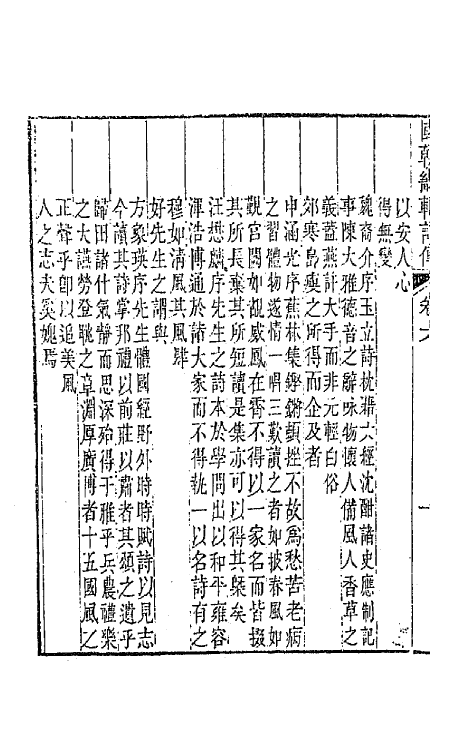 國朝畿輔詩傳 卷六 一
以安人心
得無變
魏裔介序玉立詩枕藉六經沈酣諸史應制記
事陳大雅德音之辭詠物懷人備風人香草之
義蓋燕許大手而非元輕白俗
郊寒島瘦之所得而企及者
申涵光序蕉林集鏗鏘頓挫不故為愁苦老病
之習體物遂情一唱三歎讀之者如披春風如
觀宮闕如覩威鳳在霄不得以一家名而皆掇
其所長棄其所短讀是集亦可以得其槩矣
汪懋麟序先生之詩本於學問出以和平雍容
渾浩博通於諸大家而不得執一以名詩有之
穆如清風其風肆
好先生之謂與
方象瑛序先生體國經野外時時賦詩以見志
今讀其詩掌邦禮以前莊以肅者其頌之遺乎
歸田諸什氣靜而思深殆得于雅乎兵農禮樂
之大讌勞登眺之章淵厚廣博者十五國風之
正聲乎卽以追美風
人之志夫奚媿焉